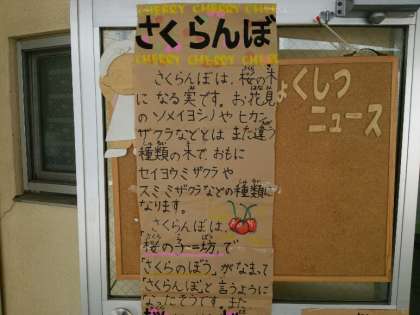 CHERRY CHERRY CHERRY
さくらんぼ
CHERRY CHERRY CHE
さくらんぼは、桜の木
になる実です。お花見
のソメイヨシノやヒカン
ザクラなどとはまた違う
種類の木で、おもに
セイヨウミザクラや
スミミザクラなどの種類に
なります。
さくらんぼは、
「桜の子=坊」で
「さくらのぼう」がなまって
「さくらんぼ」と言うように
なったそうです。また
ょくしつ
ニュース